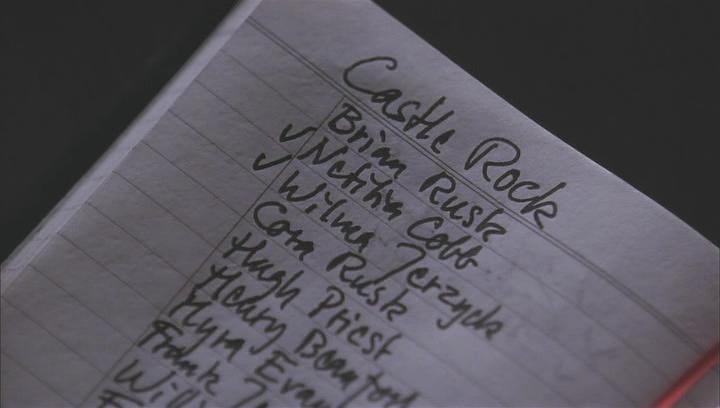 Castle Rock
Brian Rusk
✓ Nettitia Cobb
✓ Wilma Jerzyck
Cora Rusk
Hugh Priest
Henry Beaufort
Myra Evan
Frank
Will